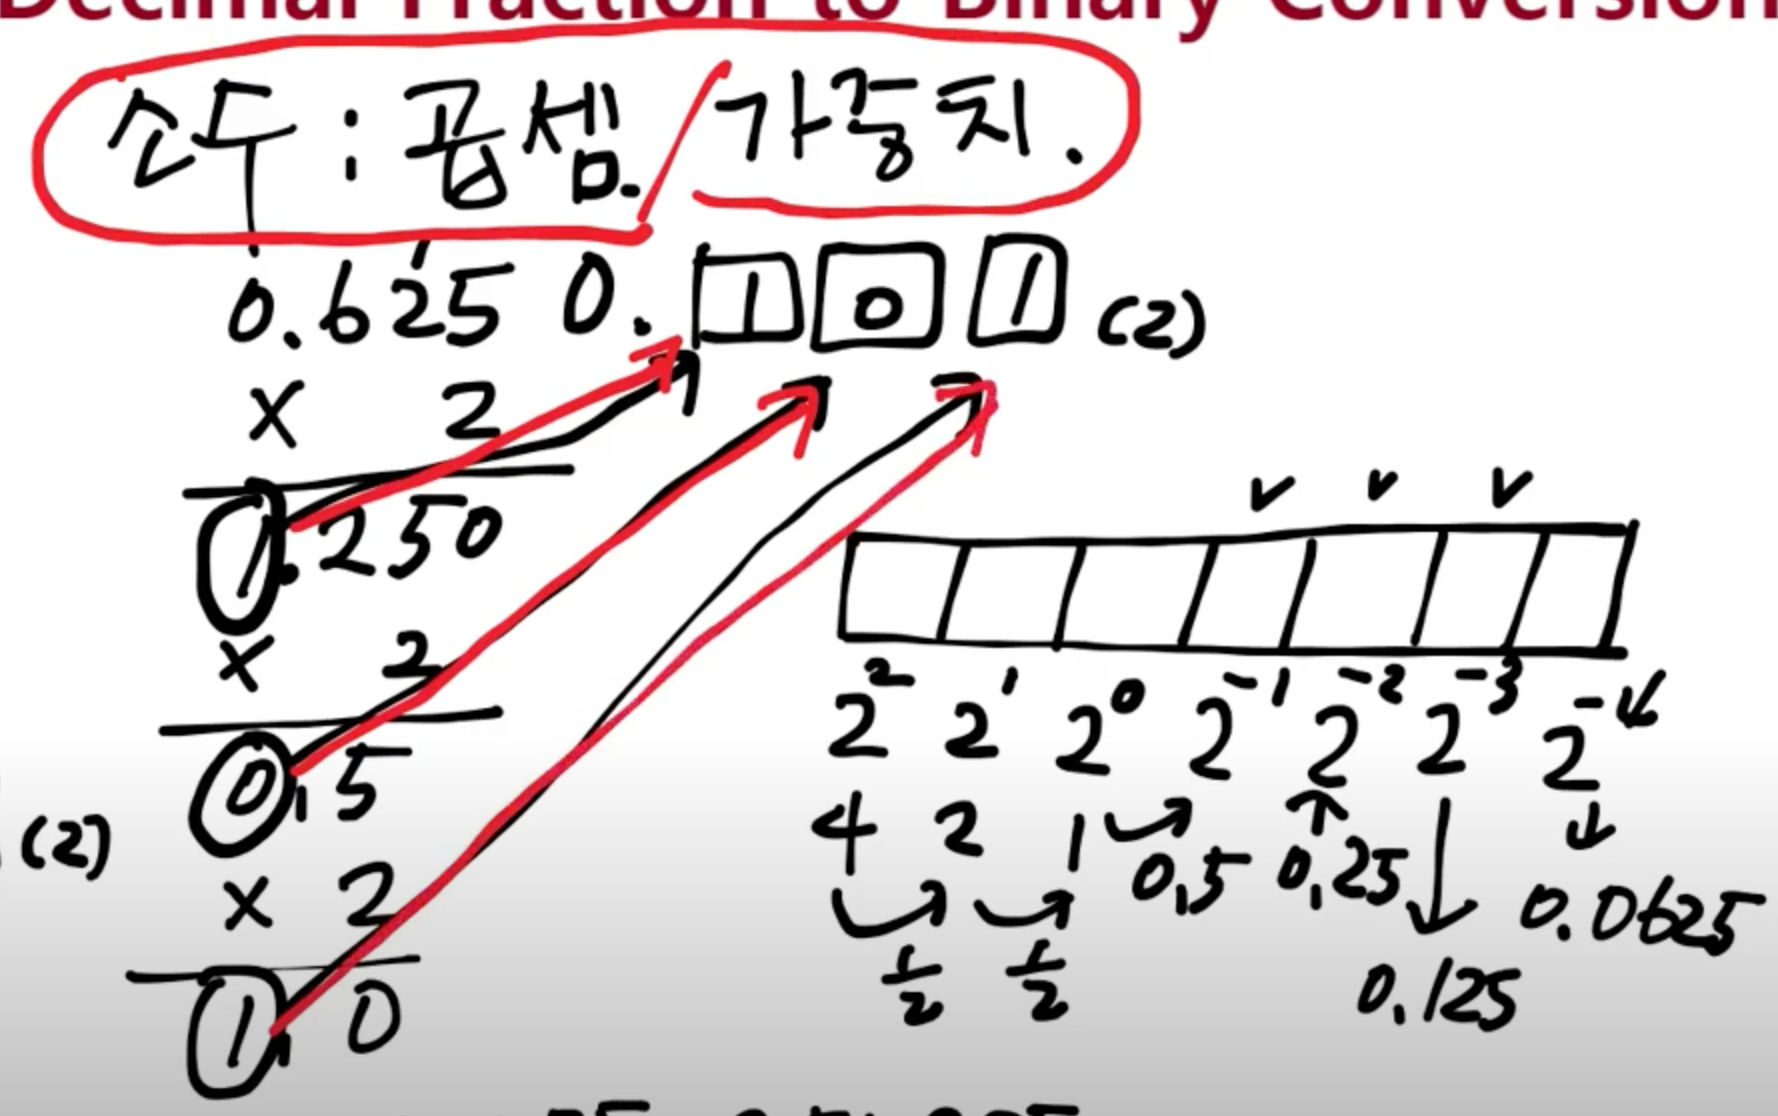 Decimal Fraction to Binary Conversion
소수 : 곱셈. / 가중치.
0.625 0. 1 0 1 (2)
x 2
1.250
x 2
0.5
(2)
x 2
1.0
2² 2¹ 2⁰ 2⁻¹ 2⁻² 2⁻³ 2⁻⁴
4 2 1 0.5 0.25 0.125 0.0625
1/2 1/2